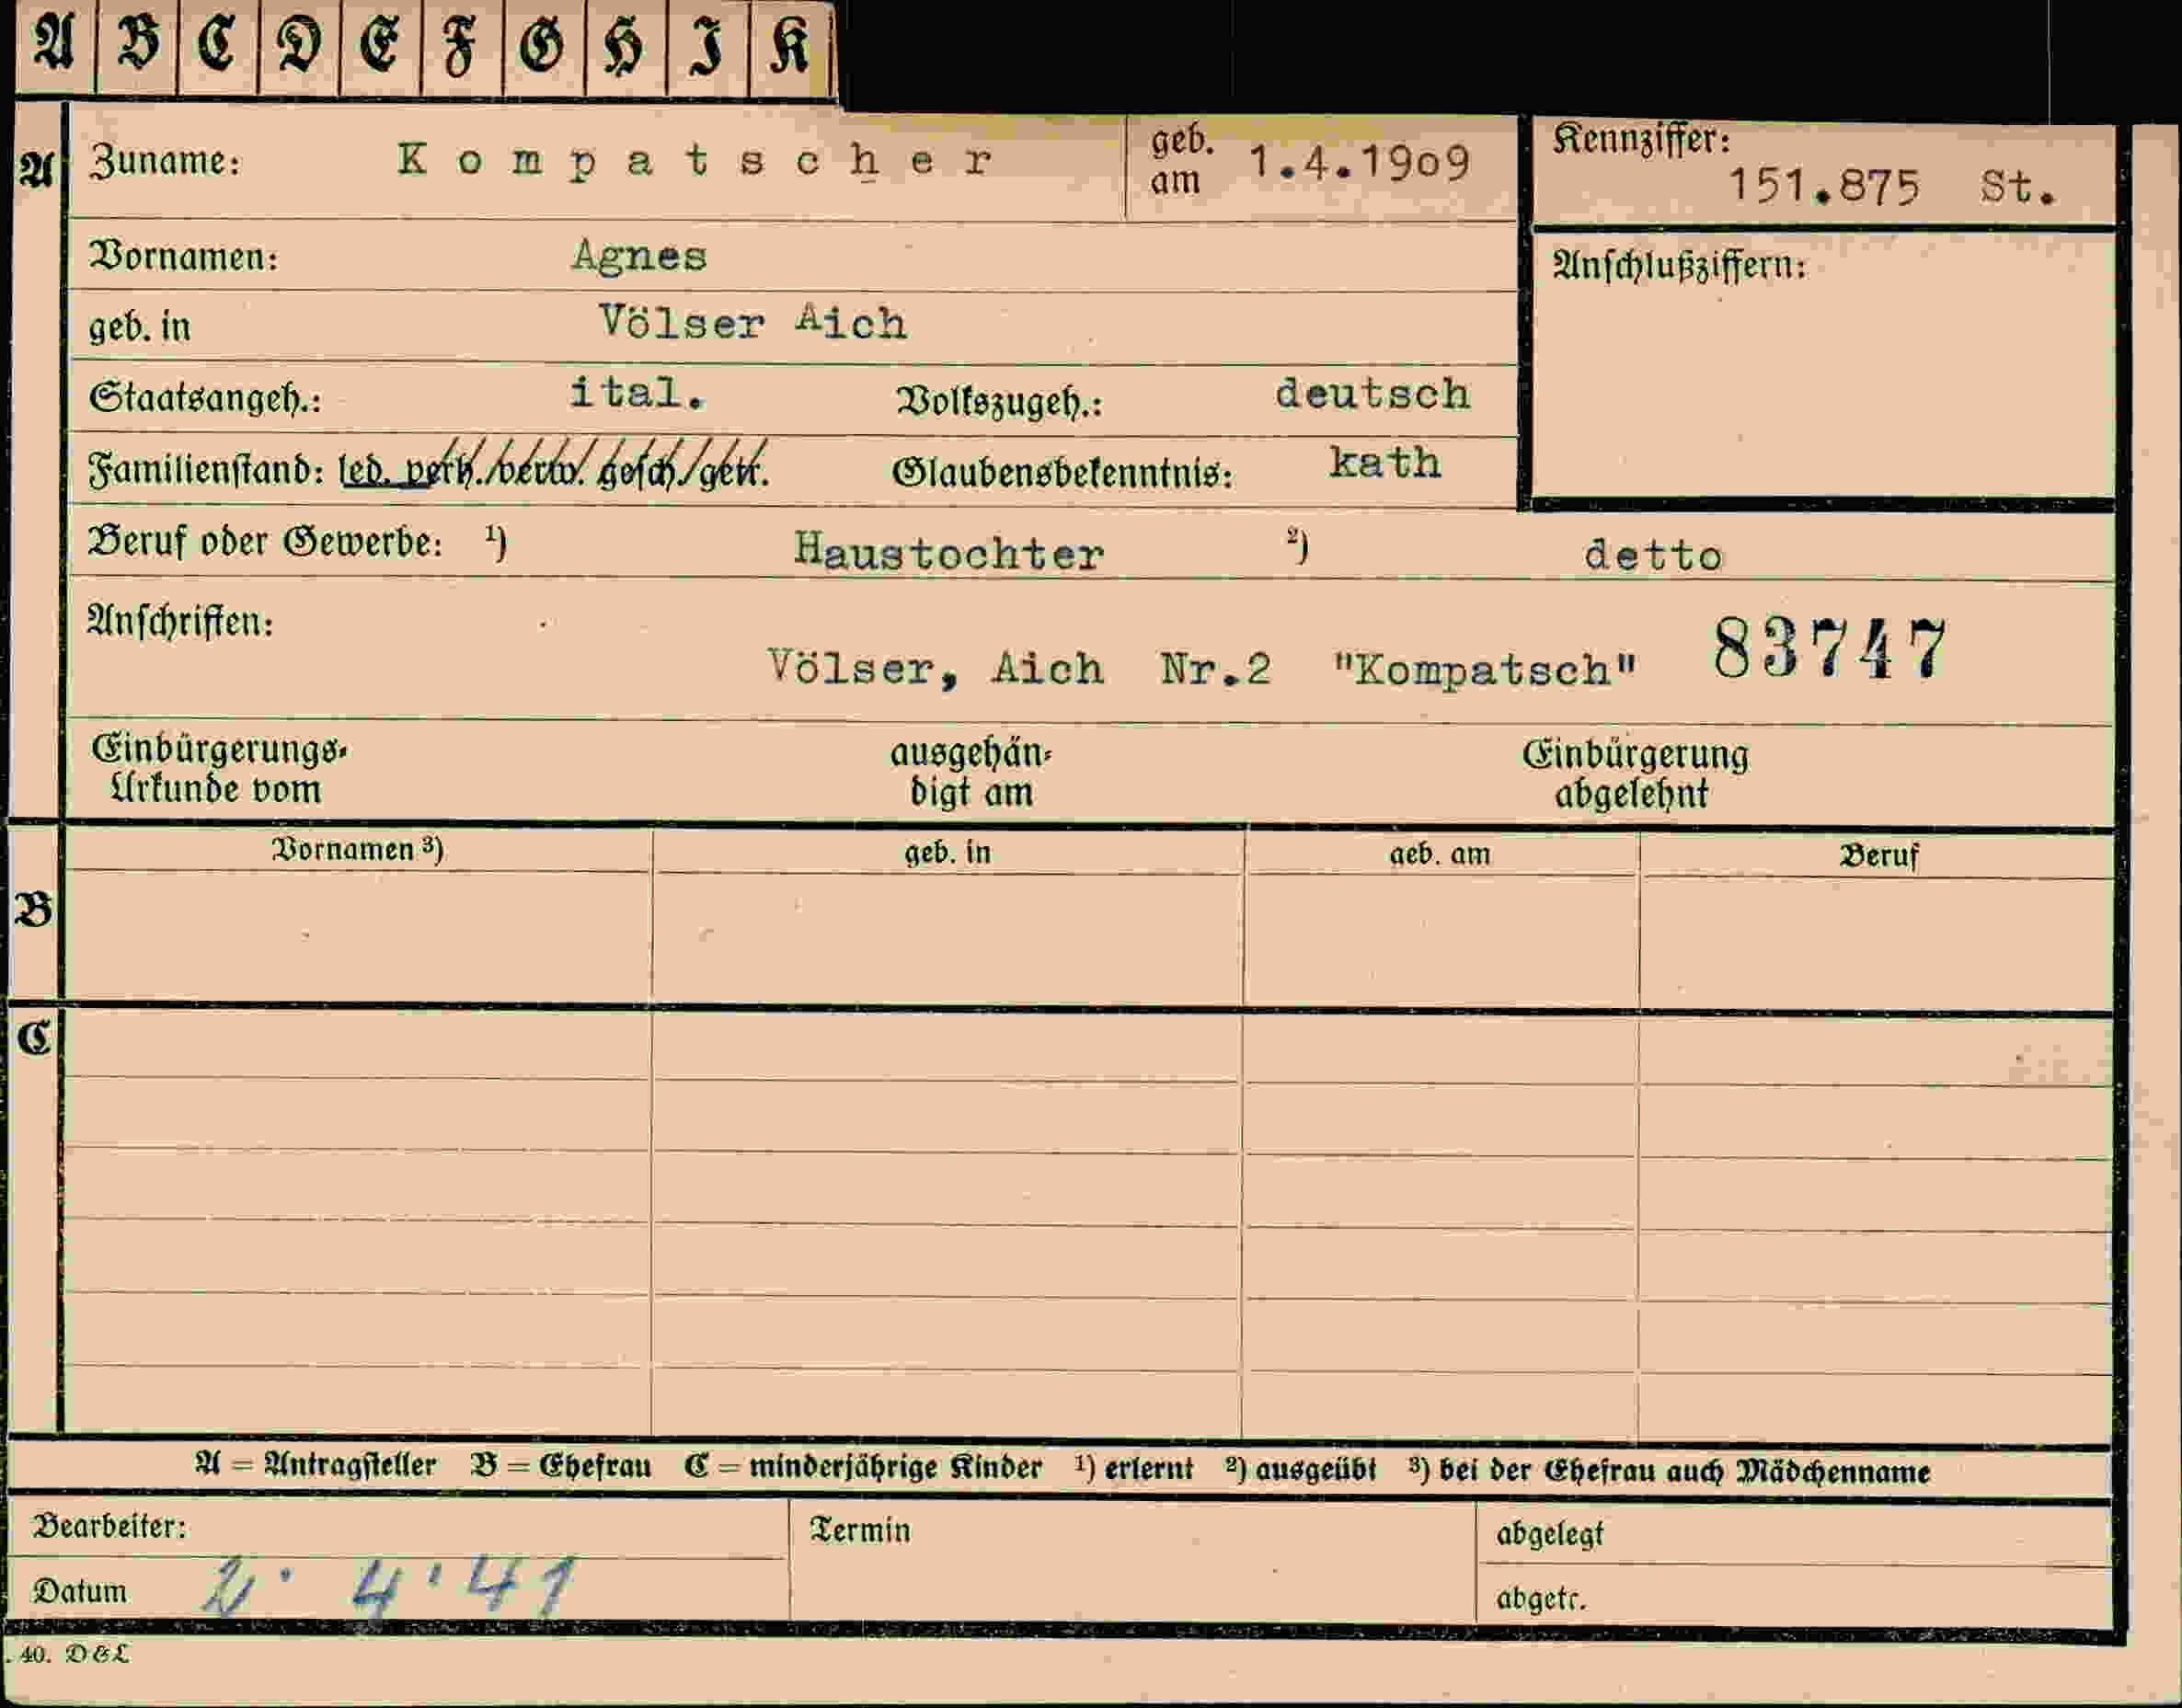 A B C D E F G H I K
A Zuname: Kompatscher geb. am 1.4.19o9 Kennziffer: 151.875 St.
Vornamen: Agnes Anschlußziffern:
geb. in Völser Aich
Staatsangeh.: ital. Volkszugeh.: deutsch
Familienstand: led. verh./verw. gesch./getr. Glaubensbekenntnis: kath
Beruf oder Gewerbe: 1) Haustochter 2) detto
Anschriften:
Völser, Aich Nr.2 "Kompatsch" 83747
Einbürgerungs- ausgehän- Einbürgerung
Urkunde vom digt am abgelehnt
Vornamen 3) geb. in geb. am Beruf
B
C
A = Antragsteller B = Ehefrau C = minderjährige Kinder 1) erlernt 2) ausgeübt 3) bei der Ehefrau auch Mädchenname
Bearbeiter: Termin abgelegt
Datum 2. 4. 41 abgetr.
. 40. D & L